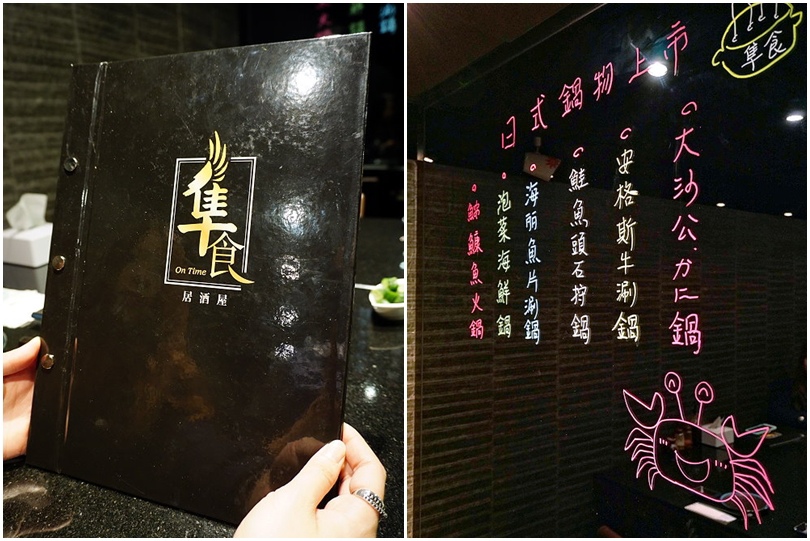 隼食
On Time
居酒屋
隼食
日式鍋物上市
大沙公.かに鍋
安格斯牛涮鍋
鮭魚頭石狩鍋
海丽魚片涮鍋
泡菜海鮮鍋
魚火鍋